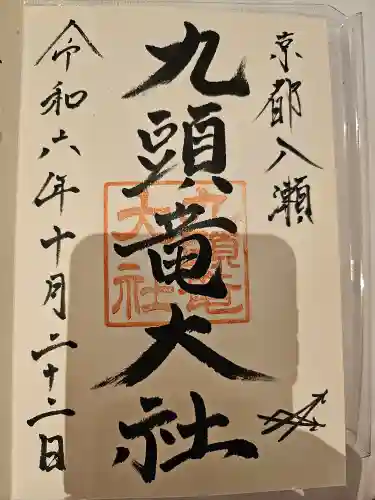 京都八瀬
九頭竜大社
令和六年十月二十二日
九頭竜
大社